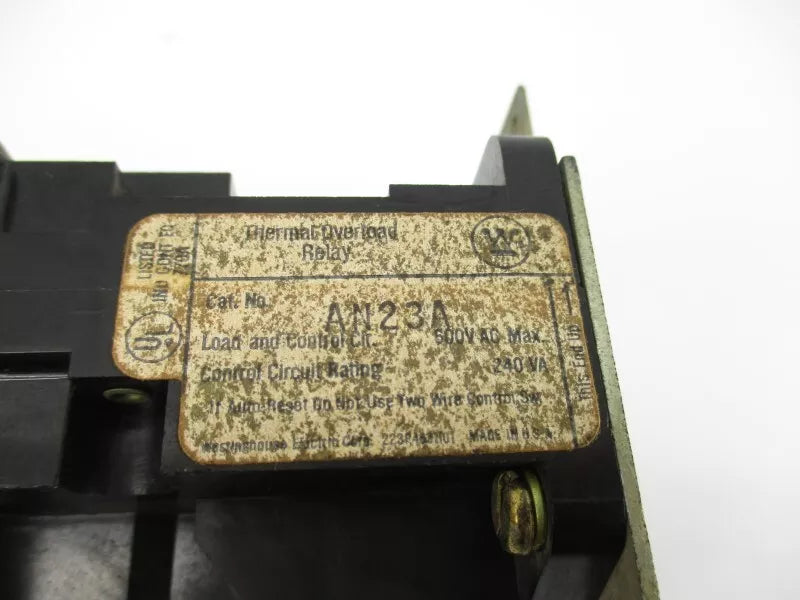 LISTED
IND CONT EQ
UL
Thermal Overload
Relay
W
Cat. No.
AN23A
Load and Control Cit. 600V AC Max.
Control Circuit Rating 240 VA
If Auto-Reset Do Not Use Two Wire Control
Westinghouse Electric Corp. MADE IN U.S.A.
This End Up